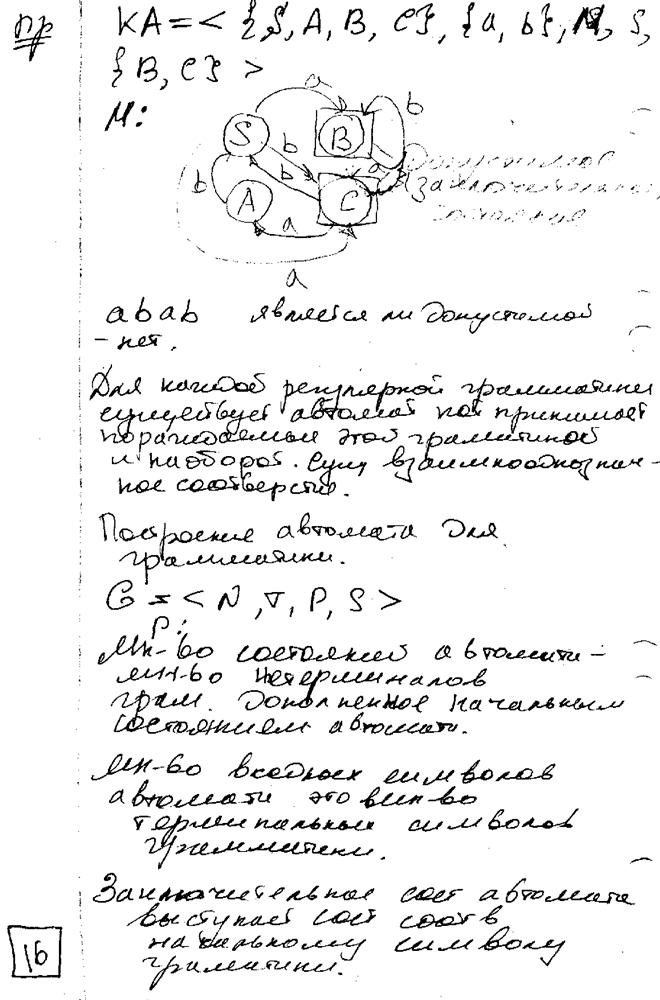 пр
КА = < {S, A, B, C}, {a, b}, М, S,
{B, C} >
М:
a
b
S
B
b
b
a
b
A
C
a
a
Допустимое
заключительное
состояние
abab является ли допустимой
- нет.
Для каждой регулярной грамматики
существует автомат кот принимает
порождаемый этой грамматикой
и наоборот. Сущ взаимнооднознач-
ное соответствие.
Построение автомата для
грамматики.
G = < N, T, P, S >
P:
Мн-во состояний автомата -
мн-во нетерминалов
грам. Дополненное начальным
состоянием автомата.
Мн-во входных символов
автомата это мн-во
терминальных символов
грамматики.
Заключительное сост автомата
выступает сост соотв
начальному символу
грамматики.
16